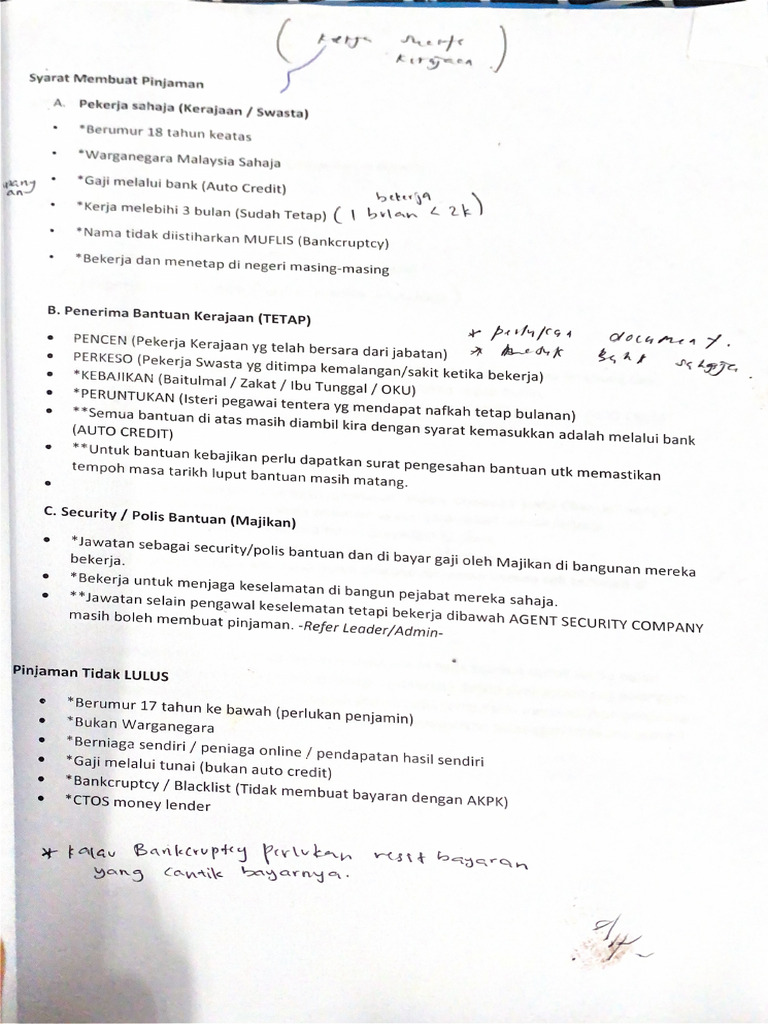 ( kerja
kerajaan )
Syarat Membuat Pinjaman
A. Pekerja sahaja (Kerajaan / Swasta)
• *Berumur 18 tahun keatas
• *Warganegara Malaysia Sahaja
• *Gaji melalui bank (Auto Credit)
bekerja
• *Kerja melebihi 3 bulan (Sudah Tetap) ( 1 bulan < 2k )
• *Nama tidak diistiharkan MUFLIS (Bankcruptcy)
• *Bekerja dan menetap di negeri masing-masing
B. Penerima Bantuan Kerajaan (TETAP)
* perlukan document.
• PENCEN (Pekerja Kerajaan yg telah bersara dari jabatan)
* sahaja.
• PERKESO (Pekerja Swasta yg ditimpa kemalangan/sakit ketika bekerja)
• *KEBAJIKAN (Baitulmal / Zakat / Ibu Tunggal / OKU)
• *PERUNTUKAN (Isteri pegawai tentera yg mendapat nafkah tetap bulanan)
• **Semua bantuan di atas masih diambil kira dengan syarat kemasukkan adalah melalui bank
(AUTO CREDIT)
• **Untuk bantuan kebajikan perlu dapatkan surat pengesahan bantuan utk memastikan
tempoh masa tarikh luput bantuan masih matang.
•
C. Security / Polis Bantuan (Majikan)
• *Jawatan sebagai security/polis bantuan dan di bayar gaji oleh Majikan di bangunan mereka
bekerja.
• *Bekerja untuk menjaga keselamatan di bangun pejabat mereka sahaja.
• **Jawatan selain pengawal keselematan tetapi bekerja dibawah AGENT SECURITY COMPANY
masih boleh membuat pinjaman. -Refer Leader/Admin-
Pinjaman Tidak LULUS
• *Berumur 17 tahun ke bawah (perlukan penjamin)
• *Bukan Warganegara
• *Berniaga sendiri / peniaga online / pendapatan hasil sendiri
• *Gaji melalui tunai (bukan auto credit)
• *Bankcruptcy / Blacklist (Tidak membuat bayaran dengan AKPK)
• *CTOS money lender
* kalau Bankcruptcy perlukan resit bayaran
yang cantik bayarnya.